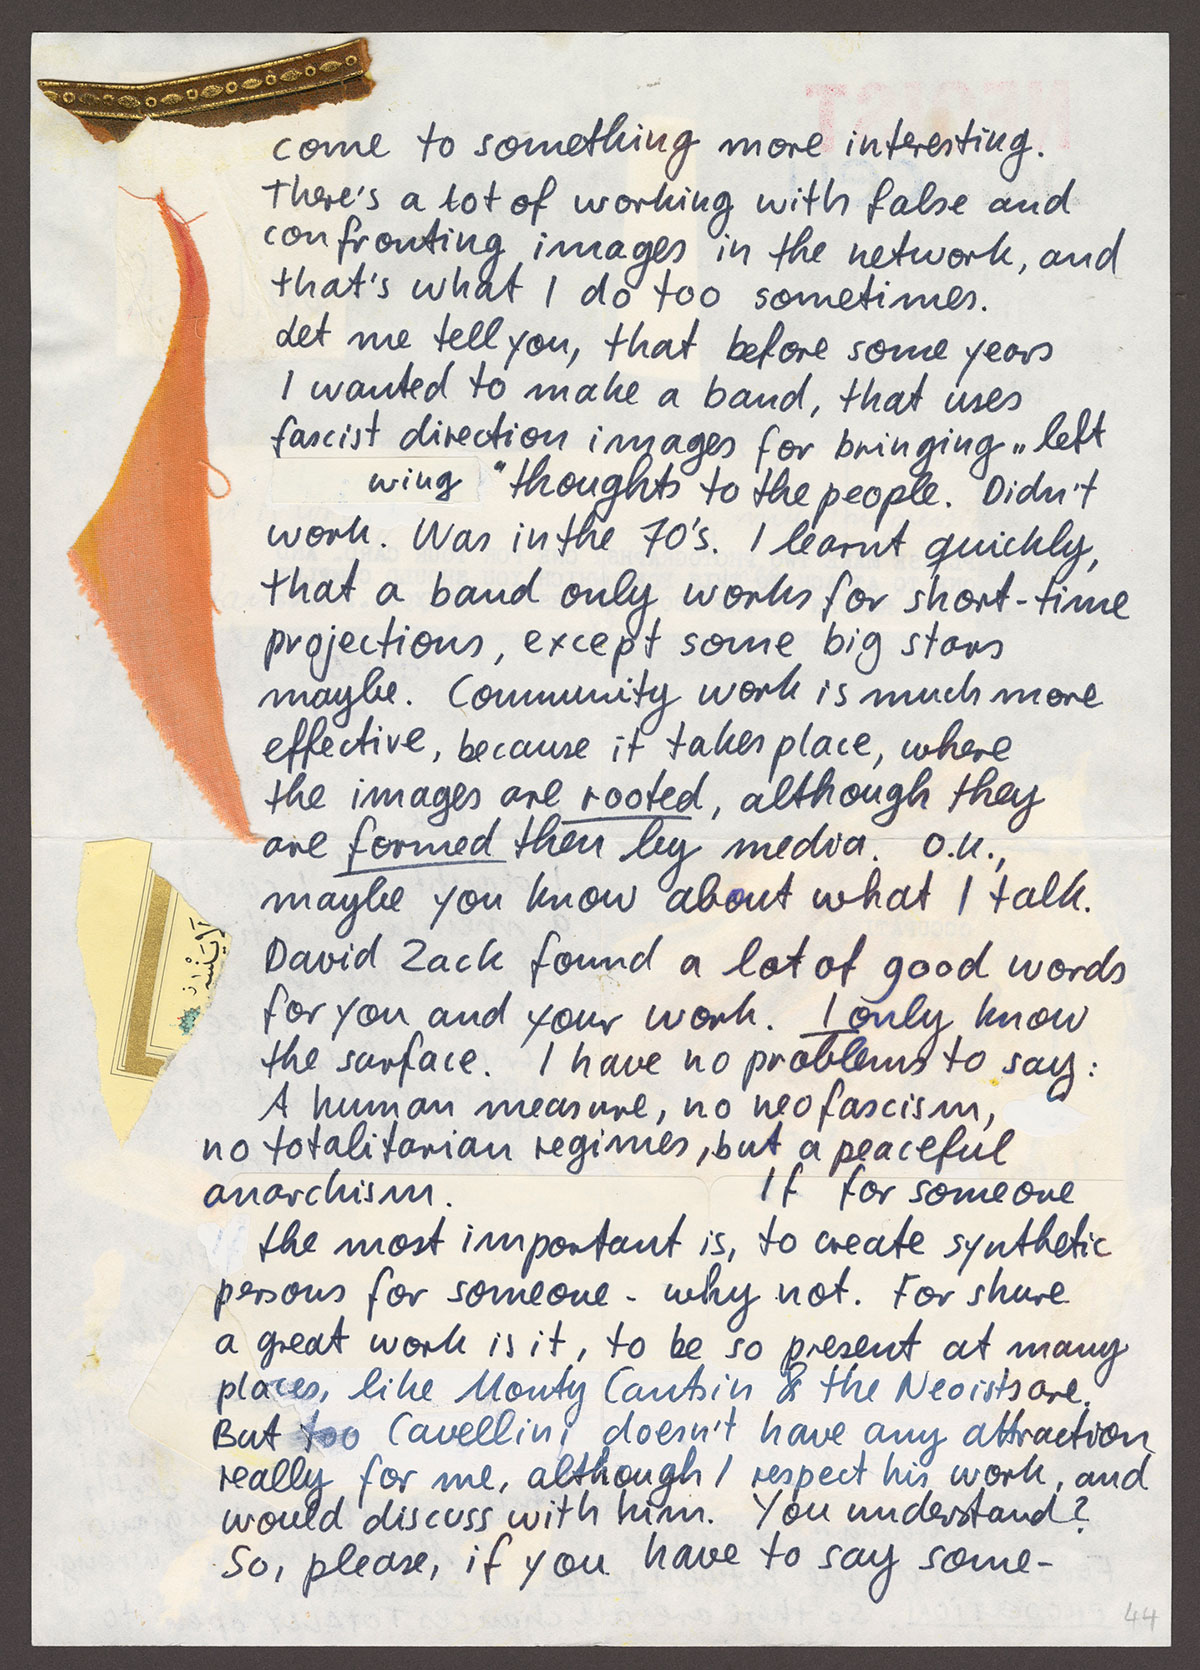 come to something more interesting.
There's a lot of working with false and
confronting images in the network, and
that's what I do too sometimes.
Let me tell you, that before some years
I wanted to make a band, that uses
fascist direction images for bringing „left
wing" thoughts to the people. Didn't
work. Was in the 70's. I learnt quickly,
that a band only works for short-time
projections, except some big stars
maybe. Community work is much more
effective, because it takes place, where
the images are rooted, although they
are formed then by media. O.K.,
maybe you know about what I talk.
David Zack found a lot of good words
for you and your work. I only know
the surface. I have no problems to say:
A human measure, no neofascism,
no totalitarian regimes, but a peaceful
anarchism. If for someone
the most important is, to create synthetic
persons for someone - why not. For shure
a great work is it, to be so present at many
places, like Monty Cantsin & the Neoists are.
But too Cavellini doesn't have any attraction
really for me, although I respect his work, and
would discuss with him. You understand?
So, please, if you have to say some-
44